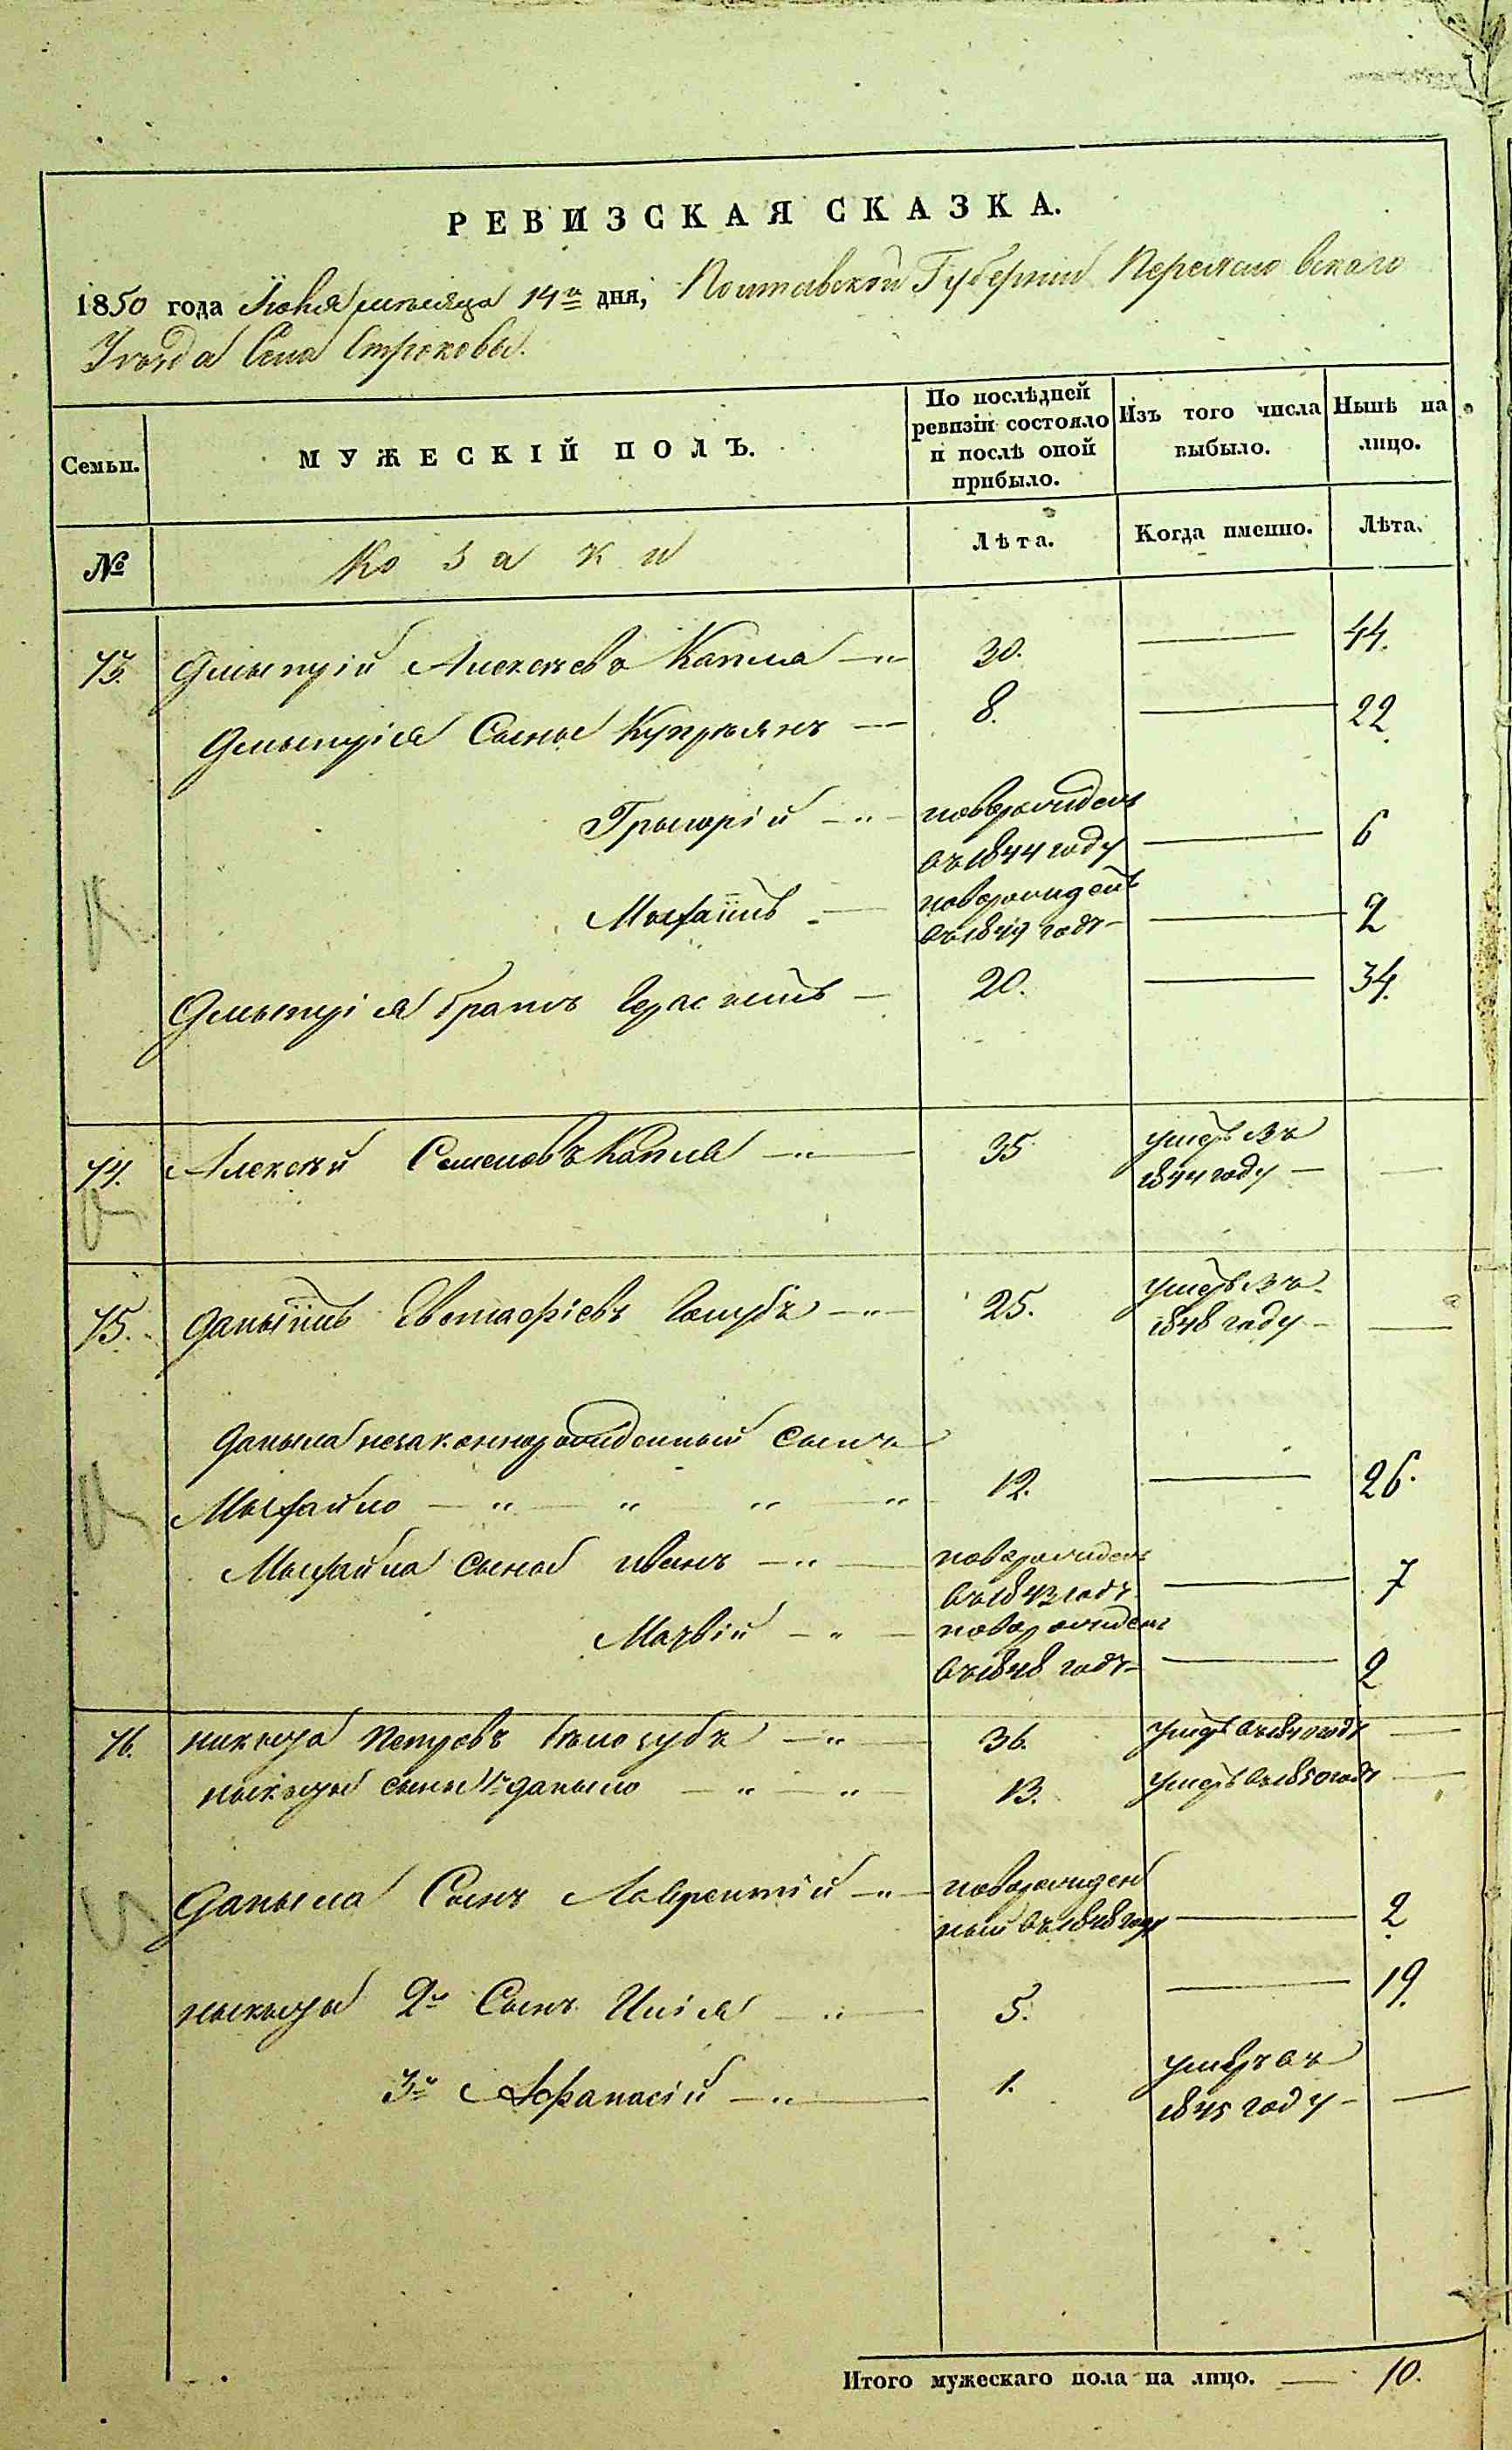 РЕВИЗСКАЯ СКАЗКА.
1850 года Июня месяца 14го дня, Полтавской Губернии Переяславскаго
Уезда Села Строковы.
Семьи.
МУЖЕСКІЙ ПОЛЪ.
По послѣдней ревизіи состояло и послѣ оной прибыло.
Изъ того числа выбыло.
Нынѣ на лицо.
№
Козаки
Лѣта.
Когда именно.
Лѣта.
Дмытрій Алексѣевъ Капла 30. 44.
Дмытрія Сыны Купріянъ 8. 22
Грыгорій новорожденъ въ 1844 году 6
новорожденъ 2
Дмытрія братъ Герасимъ 20. 34.
74. Алексѣй Семеновъ Капля 35 умеръ въ 1844 году
75. Даныилъ Евстафіевъ Голубъ 25. умеръ въ 1848 году
Даныла незаконнорожденный сынъ
Мыхайло 12. 26.
Мыхайла сыны Иванъ новорожденъ въ 1843 годѣ 7
Матвій новорожденъ въ 1848 годѣ 2
76. Никыта Петровъ Бѣлозубъ 36. умеръ въ 1840 годѣ
Ныкыты сыны 1й Даныло 13. умеръ въ 1850 годѣ
Даныла Сынъ Лаврентій новорожденный въ 1848 году 2
Ныкыты 2й Сынъ Илія 5. 19.
3й Афанасій 1. умеръ въ 1845 году
Итого мужескаго пола на лицо. 10.